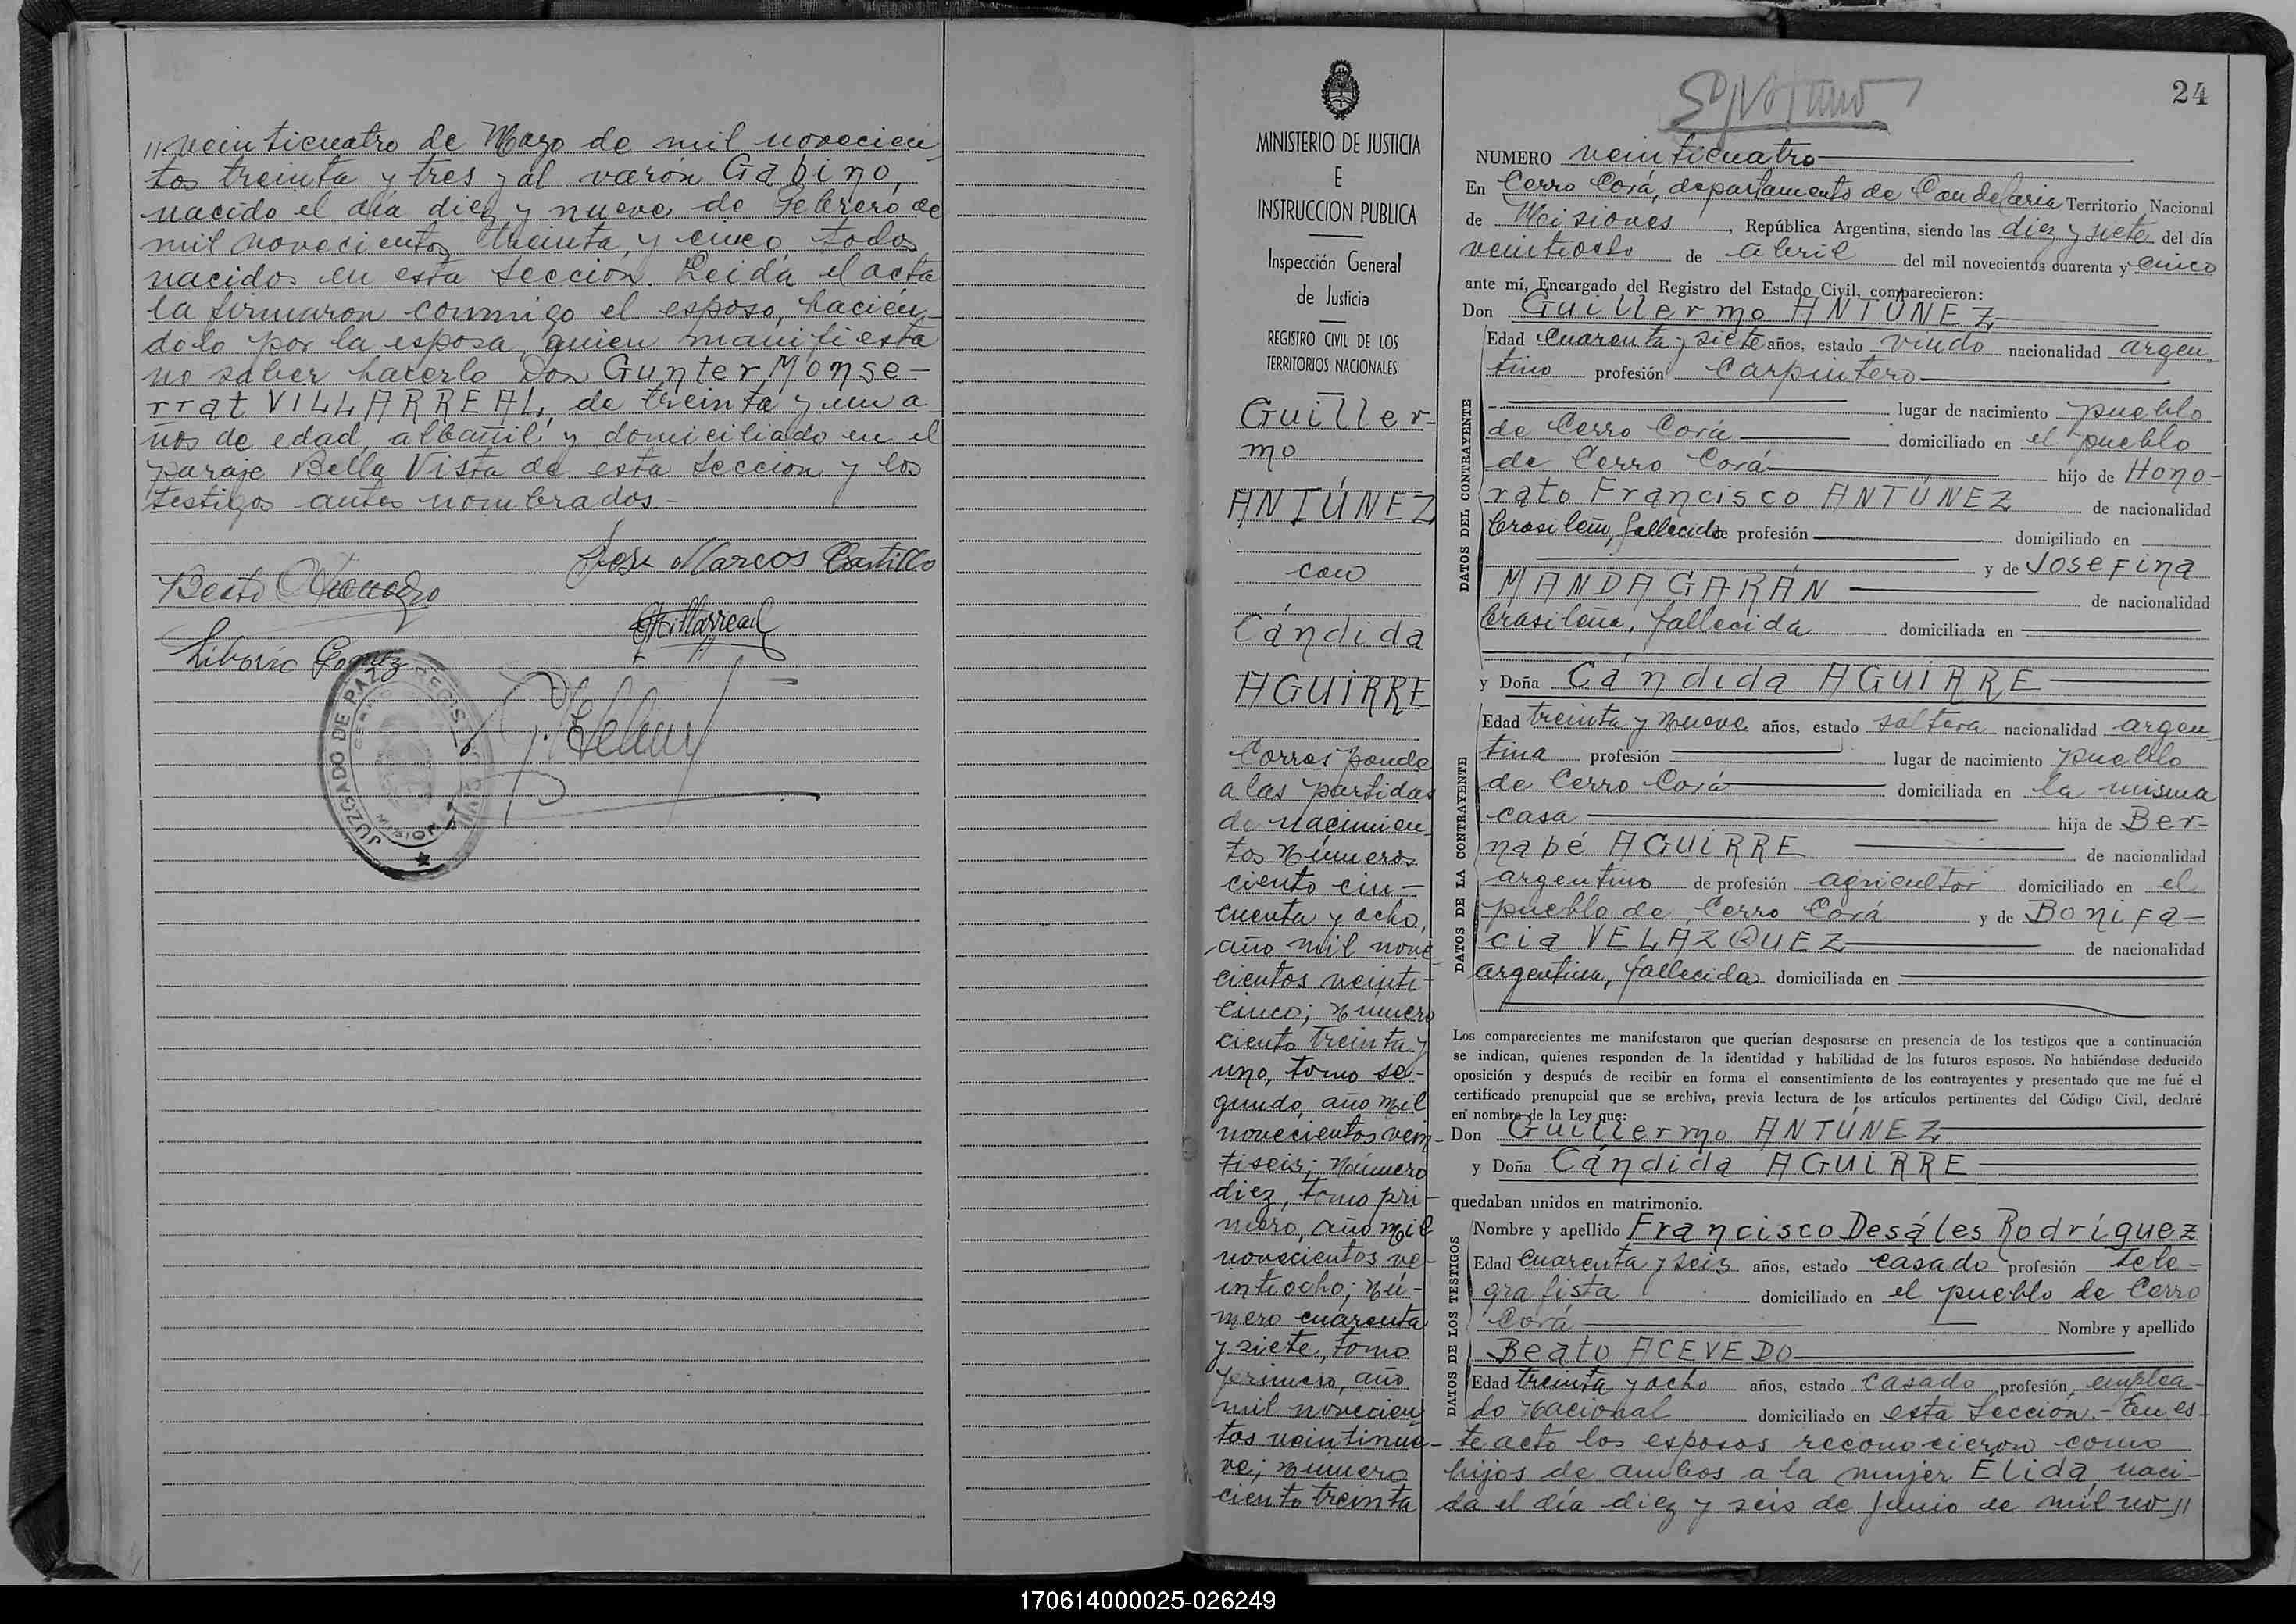 "veinticuatro de Mayo de mil novecien-
tos treinta y tres y al varón Gabino,
nacido el día diez y nueve de Febrero de
mil novecientos treinta y cinco todos
nacidos en esta sección. Leida el acta
la firmaron conmigo el esposo, hacién-
dolo por la esposa quien manifiesta
no saber hacerlo Don Gunter Monse-
rrat VILLARREAL, de treinta y un a-
ños de edad, albañil y domiciliado en el
paraje Bella Vista de esta sección y los
testigos antes nombrados.-
José Marcos Castillo
Beato Acevedo
GMVillarreal
Liborio Gomez
JUZGADO DE PAZ
REGISTRO CIVIL
CERRO
MISIONES
MINISTERIO DE JUSTICIA
E
INSTRUCCION PUBLICA
Inspección General
de Justicia
REGISTRO CIVIL DE LOS
TERRITORIOS NACIONALES
Guiller-
mo
ANTÚNEZ
con
Cándida
AGUIRRE
Corresponde
a las partidas
de nacimien-
tos números
ciento cin-
cuenta y ocho,
año mil nove-
cientos veinti-
cinco; número
ciento treinta y
uno, tomo se-
gundo, año mil
novecientos vein-
tiseis; número
diez, tomo pri-
mero, año mil
novecientos ve-
intiocho; nú-
mero cuarenta
y siete, tomo
primero, año
mil novecien-
tos veintinue-
ve; número
ciento treinta
24
NUMERO veinticuatro
En Cerro Corá, departamento de Candelaria Territorio Nacional
de Misiones, República Argentina, siendo las diez y siete del día
veintiocho de abril del mil novecientos cuarenta y cinco
ante mí, Encargado del Registro del Estado Civil, comparecieron:
Don Guillermo ANTÚNEZ
DATOS DEL CONTRAYENTE
Edad cuarenta y siete años, estado viudo nacionalidad argen-
tino profesión Carpintero
lugar de nacimiento pueblo
de Cerro Corá domiciliado en el pueblo
de Cerro Corá hijo de Hono-
rato Francisco ANTÚNEZ de nacionalidad
brasileño, fallecido de profesión domiciliado en
y de Josefina
MANDAGARÁN de nacionalidad
brasileña, fallecida domiciliada en
y Doña Cándida AGUIRRE
DATOS DE LA CONTRAYENTE
Edad treinta y nueve años, estado soltera nacionalidad argen-
tina profesión lugar de nacimiento pueblo
de Cerro Corá domiciliada en la misma
casa hija de Ber-
nabé AGUIRRE de nacionalidad
argentino de profesión agricultor domiciliado en el
pueblo de Cerro Corá y de Bonifa-
cia VELAZQUEZ de nacionalidad
argentina, fallecida domiciliada en
Los comparecientes me manifestaron que querían desposarse en presencia de los testigos que a continuación
se indican, quienes responden de la identidad y habilidad de los futuros esposos. No habiéndose deducido
oposición y después de recibir en forma el consentimiento de los contrayentes y presentado que me fué el
certificado prenupcial que se archiva, previa lectura de los artículos pertinentes del Código Civil, declaré
en nombre de la Ley que:
Don Guillermo ANTÚNEZ
y Doña Cándida AGUIRRE
quedaban unidos en matrimonio.
DATOS DE LOS TESTIGOS
Nombre y apellido Francisco Desáles Rodríguez
Edad cuarenta y seis años, estado casado profesión tele-
grafista domiciliado en el pueblo de Cerro
Corá Nombre y apellido
Beato ACEVEDO
Edad treinta y ocho años, estado casado profesión emplea-
do nacional domiciliado en esta sección.- En es-
te acto los esposos reconocieron como
hijos de ambos a la mujer Elida naci-
da el día diez y seis de Junio de mil no"
170614000025-026249